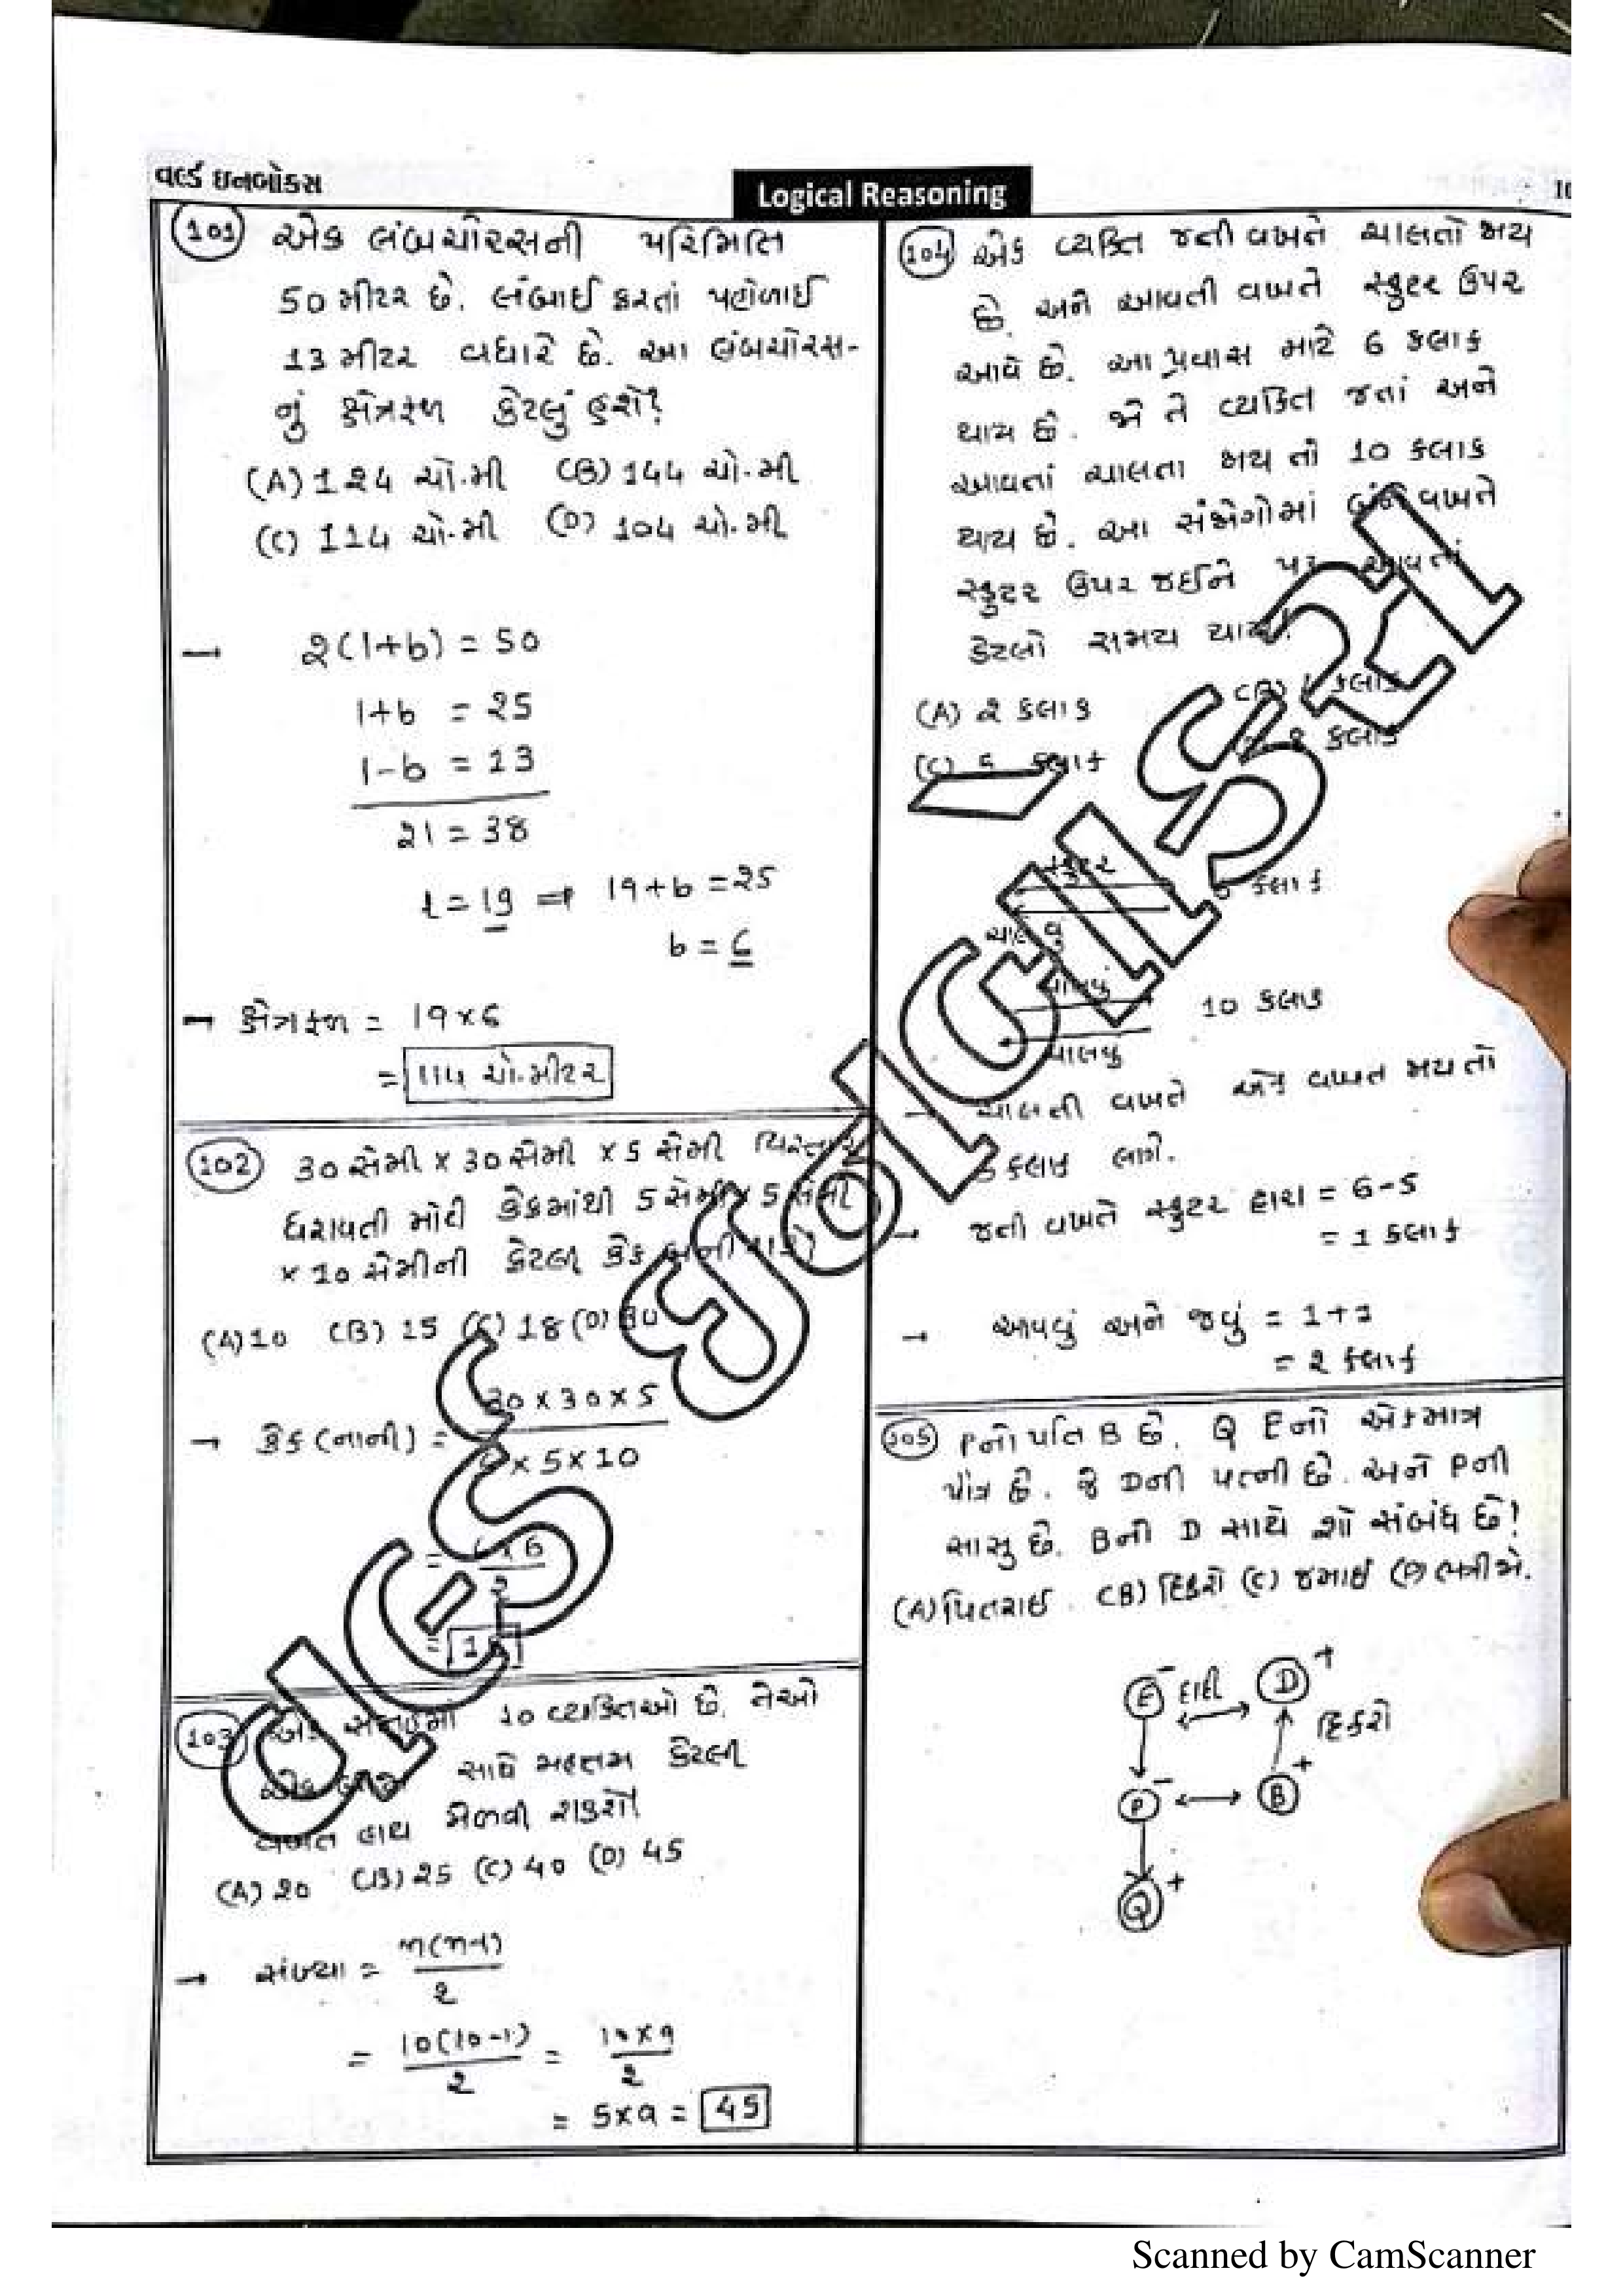 વર્લ્ડ ઇનબોક્સ
Logical Reasoning
101 એક લંબચોરસની પરિમિતિ
50 મીટર છે. લંબાઈ કરતાં પહોળાઈ
13 મીટર વધારે છે. આ લંબચોરસ-
નું ક્ષેત્રફળ કેટલું હશે?
(A) 124 ચો.મી (B) 144 ચો.મી
(C) 114 ચો.મી (D) 104 ચો.મી
→ 2(l+b) = 50
l+b = 25
l-b = 13
2l = 38
l = 19 ⇒ 19+b = 25
b = 6
→ ક્ષેત્રફળ = 19×6
= 114 ચો.મીટર
102 30 સેમી × 30 સેમી × 5 સેમી
ધરાવતી મોટી કેકમાંથી 5 સેમી × 5 સેમી
× 10 સેમીની કેટલી કેક
(A) 10 (B) 15 (C) 18 (D) 30
→ કેક (નાની) = 30 × 30 × 5
× 5 × 10
103 10 વ્યક્તિઓ છે. તેઓ
સાથે મહત્તમ કેટલી
વખત હાથ મેળવી શકશે!
(A) 20 (B) 25 (C) 40 (D) 45
→ સંખ્યા = n(n-1)
2
= 10(10-1) = 10×9
2 2
= 5×9 = 45
104 એક વ્યક્તિ જતી વખતે ચાલતો જાય
છે. અને આવતી વખતે સ્કુટર ઉપર
આવે છે. આ પ્રવાસ માટે 6 કલાક
થાય છે. જો તે વ્યક્તિ જતાં અને
આવતાં ચાલતા જાય તો 10 કલાક
થાય છે. આ સંજોગોમાં વખતે
સ્કુટર ઉપર જઈને આવતાં
કેટલો સમય થાય!
(A) 2 કલાક (B) કલાક
(C) 5 કલાક કલાક
સ્કુટર
કલાક
ચાલવું
ચાલવું
10 કલાક
ચાલવું
→ ચાલતી વખતે એક વખત જાય તો
5 કલાક લાગે.
→ જતી વખતે સ્કુટર દ્વારા = 6-5
= 1 કલાક
→ આવવું અને જવું = 1+1
= 2 કલાક
105 Pનો પતિ B છે. Q Eનો એકમાત્ર
પૌત્ર છે. જે Dની પત્ની છે. અને Pની
સાસુ છે. Bની D સાથે શો સંબંધ છે!
(A) પિતરાઈ (B) દિકરો (C) જમાઈ (D) ભત્રીજો.
E - દાદી D +
દિકરો
P - B +
Q +
Scanned by CamScanner